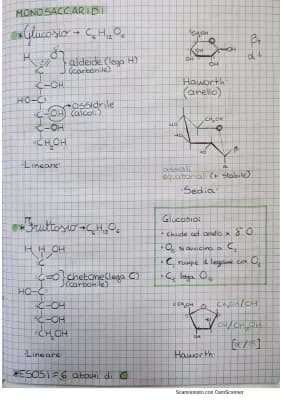 MONOSACCARIDI
*Glucosio → C6 H12 O6
H
O
C
aldeide (lega H)
(carbonile)
C-OH
HO-C
C-OH
ossidrile
(alcoli)
C-OH
CH2OH
Lineare
Haworth
(anello)
assiali
equatoriali (+ stabile)
Sedia
*Fruttosio → C6 H12 O6
H H OH
C
C=O
chetone (lega C)
(carbonile)
HO-C
C-OH
C-OH
CH2OH
Lineare
Glucosio:
• chiude ad anello x O
• O5 si avvicina a C1
• C1 rompe il legame con O1
• C1 lega O5
CH2OH
CH2OH/OH
OH/CH2OH
[α/β]
Haworth
*ESOSI = 6 atomi di C
Scansionato con CamScanner